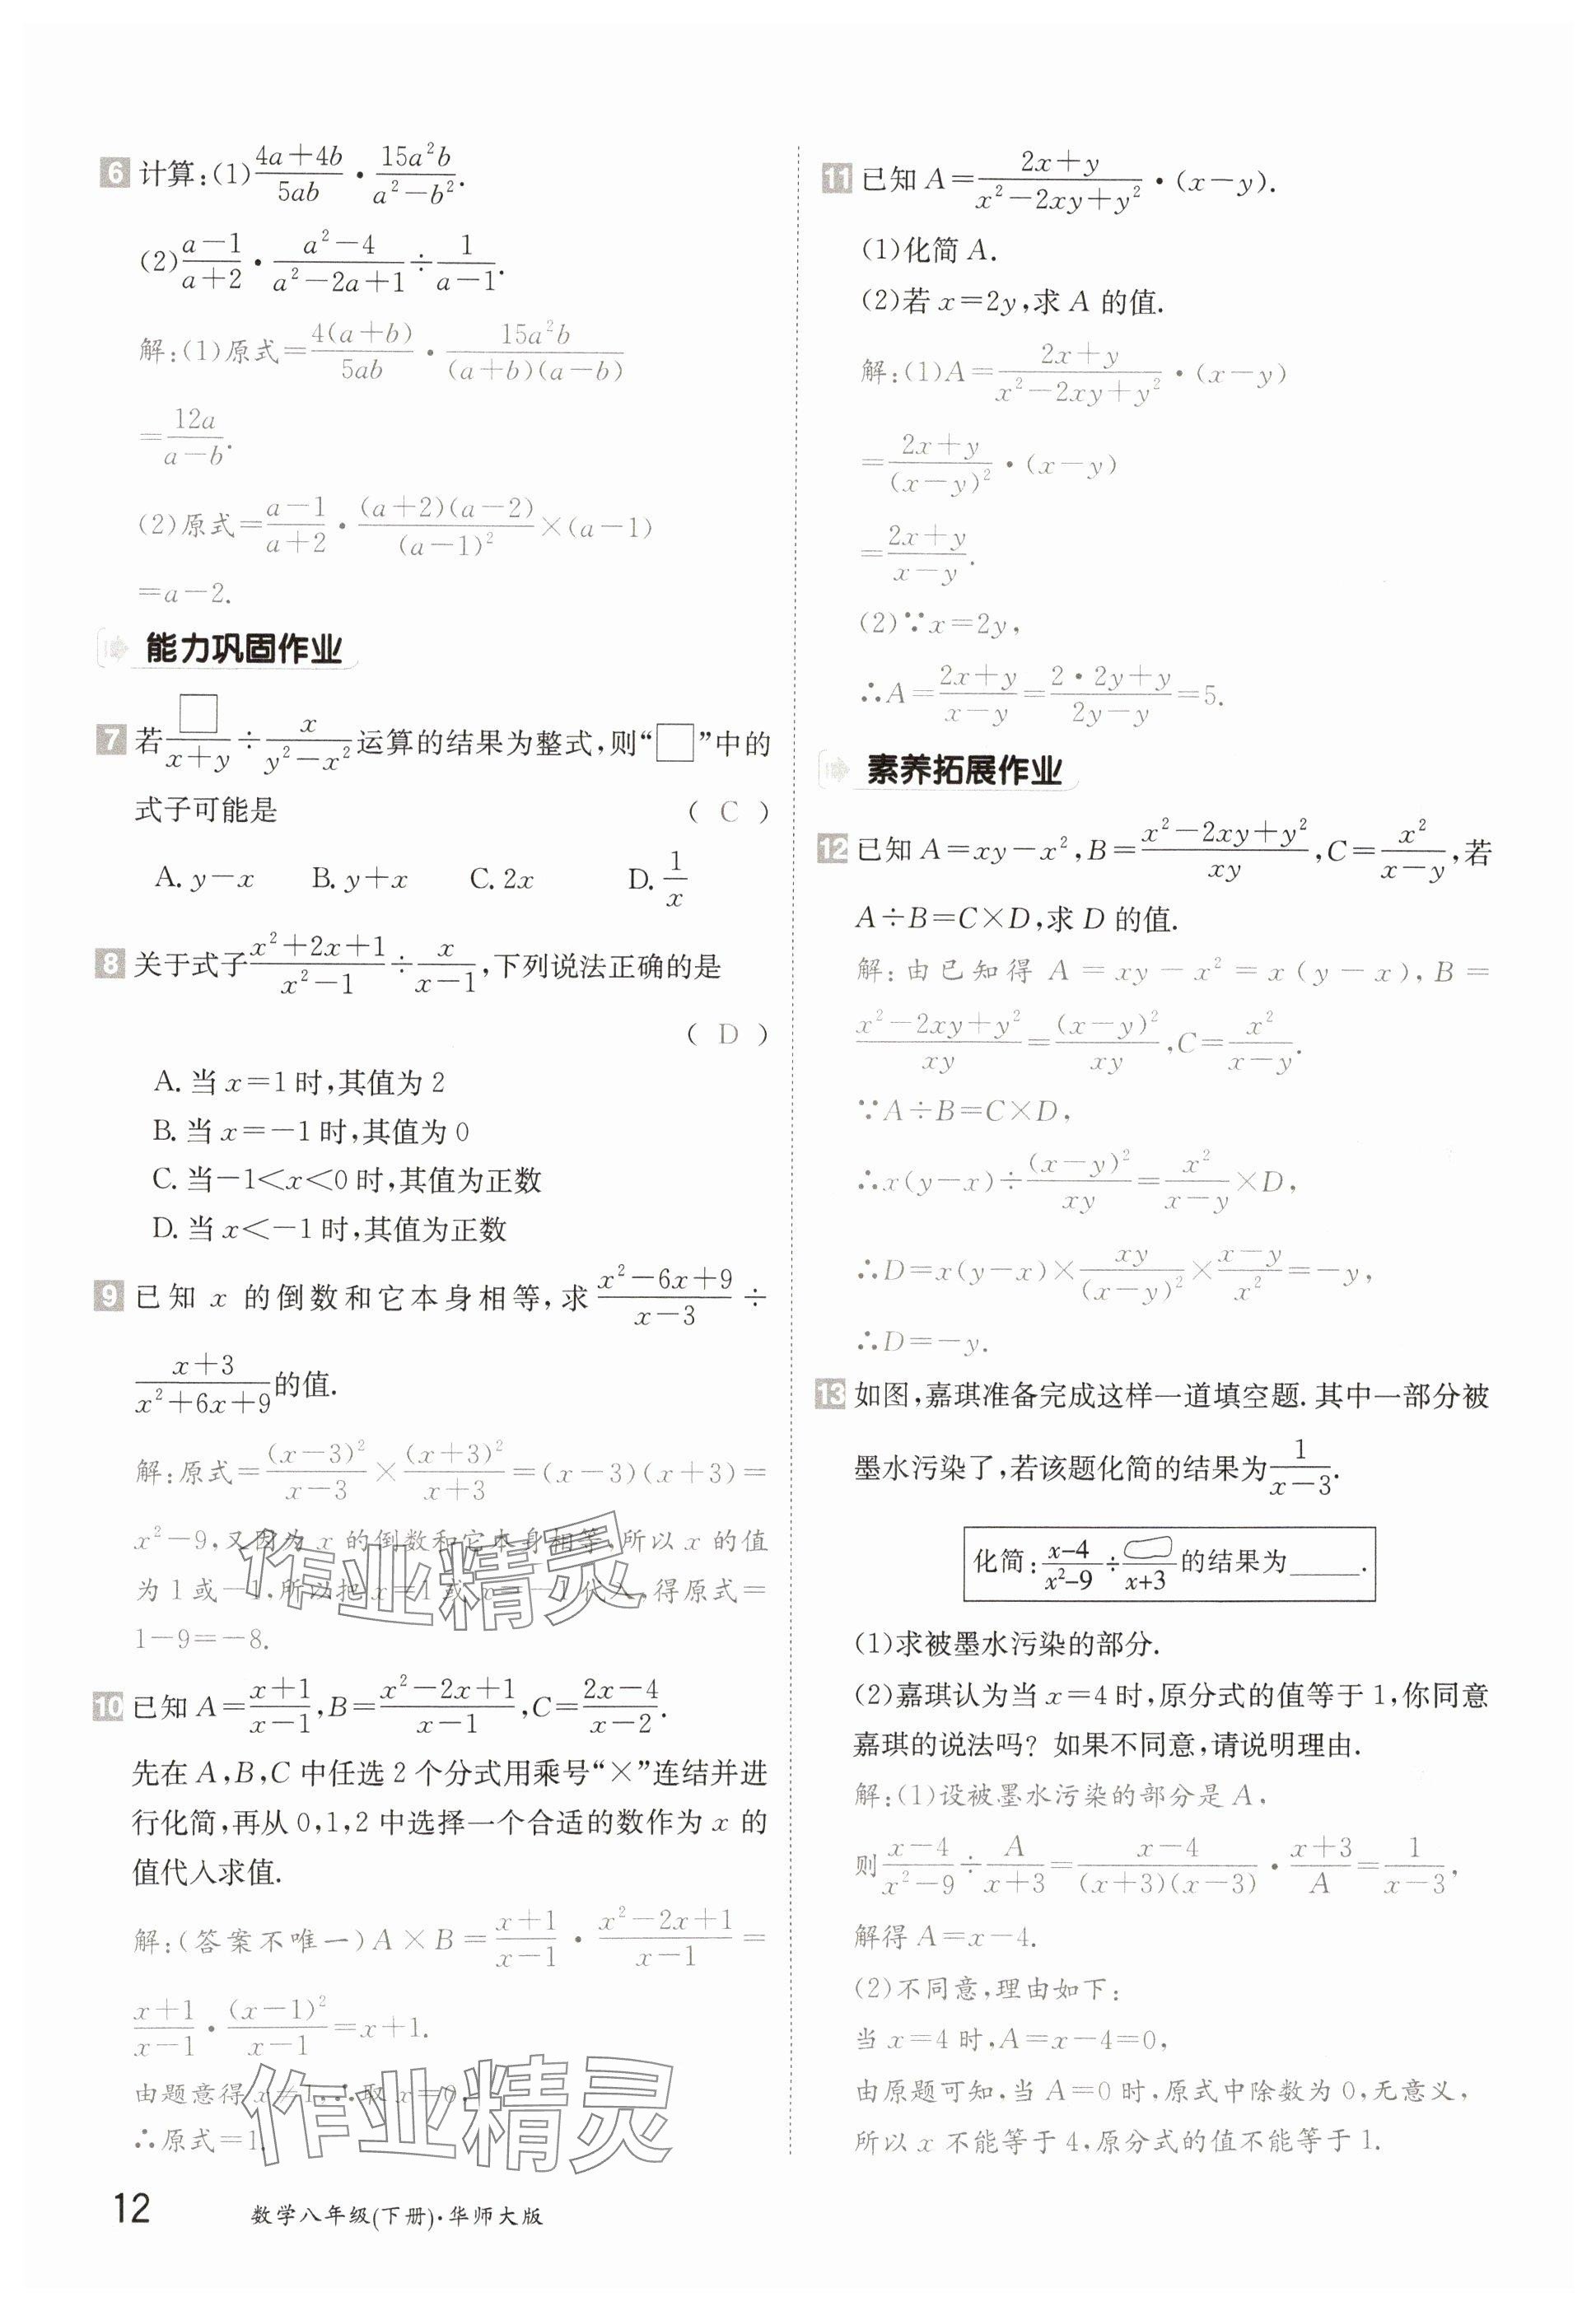 6 计算:(1)\frac{4a+4b}{5ab}·\frac{15a²b}{a²-b²}.
(2)\frac{a-1}{a+2}·\frac{a²-4}{a²-2a+1}÷\frac{1}{a-1}.
解:(1)原式=\frac{4(a+b)}{5ab}·\frac{15a²b}{(a+b)(a-b)}
=\frac{12a}{a-b}.
(2)原式=\frac{a-1}{a+2}·\frac{(a+2)(a-2)}{(a-1)²}×(a-1)
=a-2.
能力巩固作业
7 若\frac{□}{x+y}÷\frac{x}{y²-x²}运算的结果为整式,则“□”中的
式子可能是 ( C )
A. y-x B. y+x C. 2x D. \frac{1}{x}
8 关于式子\frac{x²+2x+1}{x²-1}÷\frac{x}{x-1},下列说法正确的是
( D )
A. 当 x=1 时,其值为 2
B. 当 x=-1 时,其值为 0
C. 当-1<x<0 时,其值为正数
D. 当 x<-1 时,其值为正数
9 已知 x 的倒数和它本身相等,求\frac{x²-6x+9}{x-3}÷
\frac{x+3}{x²+6x+9}的值.
解:原式=\frac{(x-3)²}{x-3}×\frac{(x+3)²}{x+3}=(x-3)(x+3)=
x²-9,又因为 x 的倒数和它本身相等,所以 x 的值
为 1 或-1,所以把 x=1 或 x=-1代入,得原式=
1-9=-8.
10 已知 A=\frac{x+1}{x-1},B=\frac{x²-2x+1}{x-1},C=\frac{2x-4}{x-2}.
先在 A,B,C 中任选 2 个分式用乘号“×”连结并进
行化简,再从 0,1,2 中选择一个合适的数作为 x 的
值代入求值.
解:(答案不唯一)A×B=\frac{x+1}{x-1}·\frac{x²-2x+1}{x-1}=
\frac{x+1}{x-1}·\frac{(x-1)²}{x-1}=x+1.
由题意得 x≠1,∴取 x=0,
∴原式=1.
12 数学八年级(下册)·华师大版
11 已知 A=\frac{2x+y}{x²-2xy+y²}·(x-y).
(1)化简 A.
(2)若 x=2y,求 A 的值.
解:(1)A=\frac{2x+y}{x²-2xy+y²}·(x-y)
=\frac{2x+y}{(x-y)²}·(x-y)
=\frac{2x+y}{x-y}.
(2)∵x=2y,
∴A=\frac{2x+y}{x-y}=\frac{2·2y+y}{2y-y}=5.
素养拓展作业
12 已知 A=xy-x²,B=\frac{x²-2xy+y²}{xy},C=\frac{x²}{x-y},若
A÷B=C×D,求 D 的值.
解:由已知得 A=xy-x²=x(y-x),B=
\frac{x²-2xy+y²}{xy}=\frac{(x-y)²}{xy},C=\frac{x²}{x-y}.
∵A÷B=C×D,
∴x(y-x)÷\frac{(x-y)²}{xy}=\frac{x²}{x-y}×D,
∴D=x(y-x)×\frac{xy}{(x-y)²}×\frac{x-y}{x²}=-y,
∴D=-y.
13 如图,嘉琪准备完成这样一道填空题. 其中一部分被
墨水污染了,若该题化简的结果为\frac{1}{x-3}.
化简:\frac{x-4}{x²-9}÷\frac{}{x+3}的结果为_____.
(1)求被墨水污染的部分.
(2)嘉琪认为当 x=4 时,原分式的值等于 1,你同意
嘉琪的说法吗? 如果不同意,请说明理由.
解:(1)设被墨水污染的部分是 A,
则\frac{x-4}{x²-9}÷\frac{A}{x+3}=\frac{x-4}{(x+3)(x-3)}·\frac{x+3}{A}=\frac{1}{x-3},
解得 A=x-4.
(2)不同意,理由如下:
当 x=4 时,A=x-4=0,
由原题可知,当 A=0 时,原式中除数为 0,无意义,
所以 x 不能等于 4,原分式的值不能等于 1.
作业精灵
作业精灵